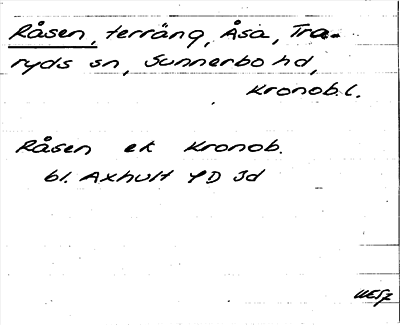 Råsen, terräng, Åsa, Tra-
ryds sn, Sunnerbo hd,
Kronob. l.
Råsen ek Kronob.
bl. Axhult 4D 3d